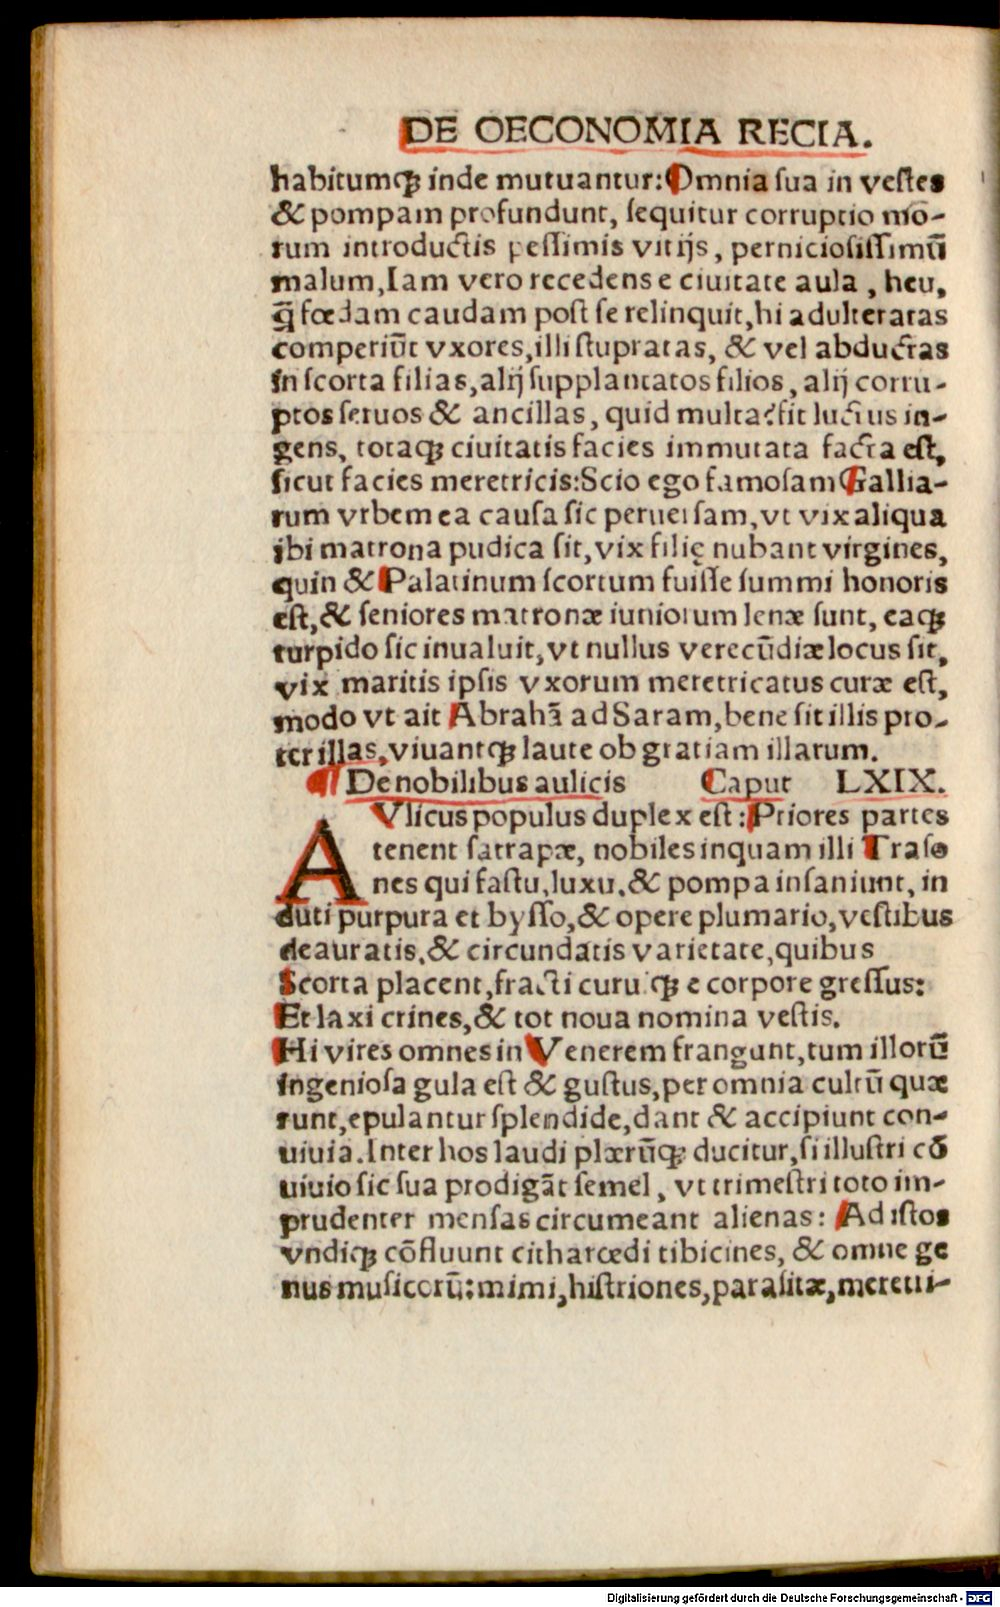 DE OECONOMIA RECIA.
habitumqꝫ inde mutuantur: Omnia sua in vestes
& pompam profundunt, sequitur corruptio mo-
rum introductis pessimis vitijs, perniciosissimū
malum, Iam vero recedens e ciuitate aula, heu,
q̄ fœdam caudam post se relinquit, hi adulteratas
comperiūt vxores, illi stupratas, & vel abductas
in scorta filias, alij supplantatos filios, alij corru-
ptos seruos & ancillas, quid multa? fit luctus in-
gens, totaqꝫ ciuitatis facies immutata facta est,
sicut facies meretricis: Scio ego famosam Gallia-
rum vrbem ea causa sic peruersam, vt vix aliqua
ibi matrona pudica sit, vix filię nubant virgines,
quin & Palatinum scortum fuisse summi honoris
est, & seniores matronæ iuniorum lenæ sunt, eaqꝫ
turpido sic inualuit, vt nullus verecūdiæ locus sit,
vix maritis ipsis vxorum meretricatus curæ est,
modo vt ait Abrahā ad Saram, bene sit illis pro-
ter illas, viuantqꝫ laute ob gratiam illarum.
¶ De nobilibus aulicis Caput LXIX.
AVlicus populus duplex est: Priores partes
tenent satrapæ, nobiles inquam illi Traso
nes qui fastu, luxu, & pompa insaniunt, in
duti purpura et bysso, & opere plumario, vestibus
deauratis, & circundatis varietate, quibus
Scorta placent, fracti curuiqꝫ e corpore gressus:
Et laxi crines, & tot noua nomina vestis.
Hi vires omnes in Venerem frangunt, tum illorū
ingeniosa gula est & gustus, per omnia cultū quæ
runt, epulantur splendide, dant & accipiunt con-
uiuia. Inter hos laudi plærūqꝫ ducitur, si illustri cō
uiuio sic sua prodigāt semel, vt trimestri toto im-
prudenter mensas circumeant alienas: Ad istos
vndiqꝫ cōfluunt citharœdi tibicines, & omne ge
nus musicorū: mimi, histriones, parasitæ, meretri-
Digitalisierung gefördert durch die Deutsche Forschungsgemeinschaft - DFG